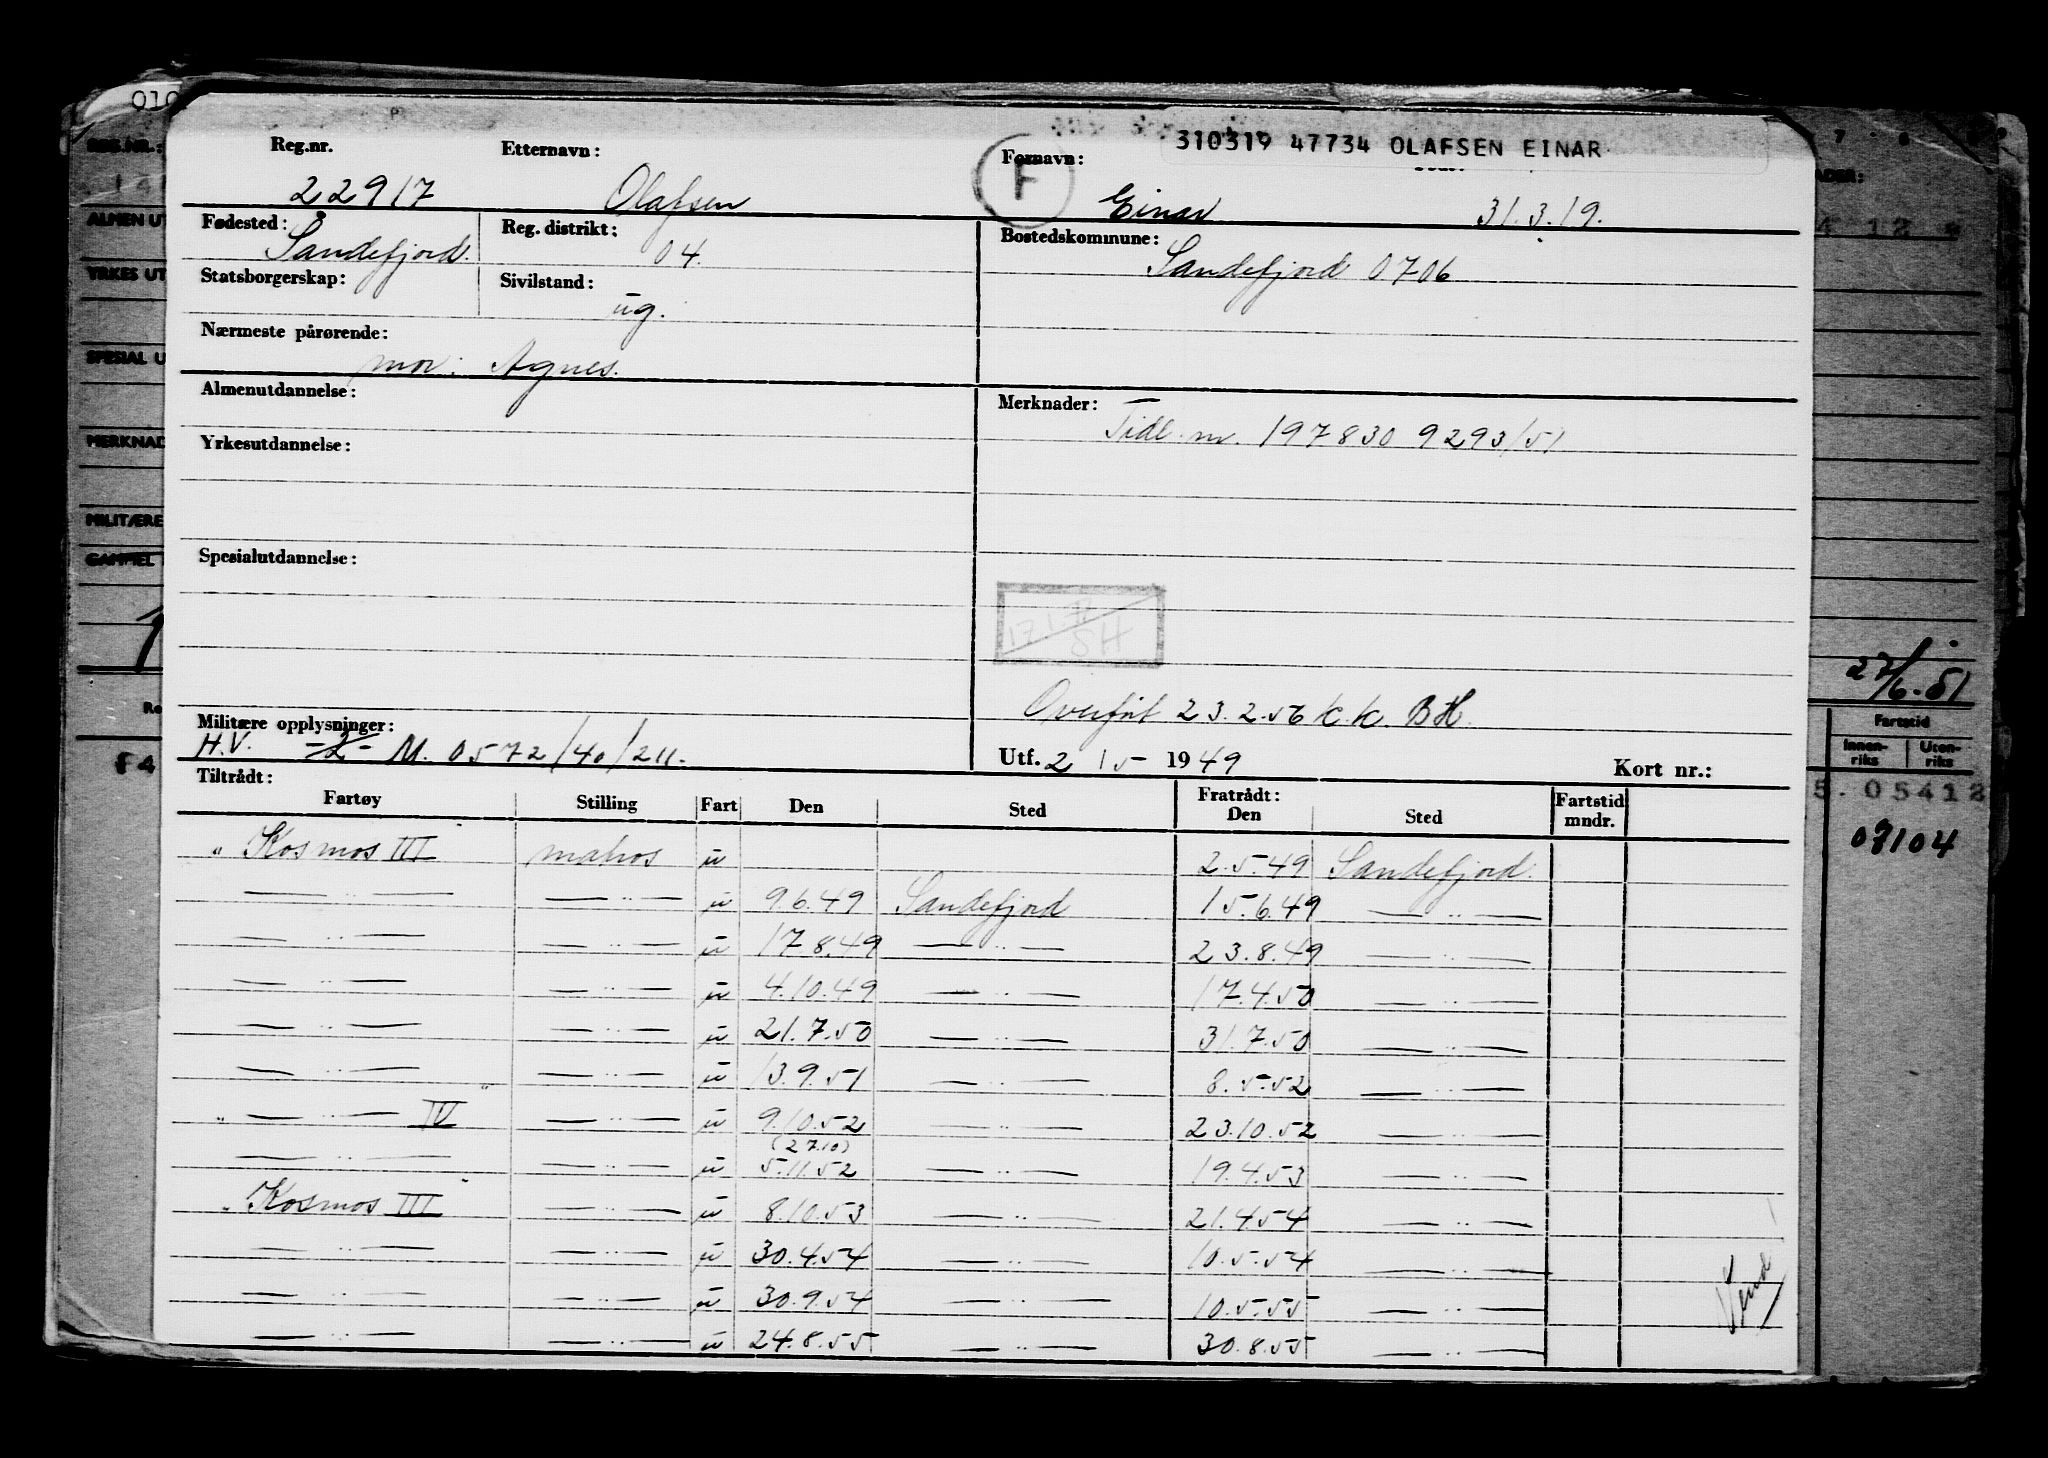 310319 47734 OLAFSEN EINAR
Reg.nr. Etternavn: Fornavn:
F
22917 Olafsen Einar 31.3.19.
Fødested: Reg. distrikt: Bostedskommune:
Sandefjord. 04. Sandefjord 0706
Statsborgerskap: Sivilstand:
ug.
Nærmeste pårørende:
mor: Agnes.
Almenutdannelse: Merknader:
Tidl. nr. 197830 9293/51
Yrkesutdannelse:
Spesialutdannelse:
Overført 23.2.56 k.k. BH.
Militære opplysninger:
H.V. -2- M. 0572/40/211. Utf. 2/5- 1949 Kort nr.:
Tiltrådt: Fratrådt:
Fartøy Stilling Fart Den Sted Den Sted Fartstid mndr.
"Kosmos III" matros u 2.5.49 Sandefjord.
— " — — " — u 9.6.49 Sandefjord 15.6.49 — " —
— " — — " — u 17.8.49 — " — 23.8.49 — " —
— " — — " — u 4.10.49 — " — 17.4.50 — " —
— " — — " — u 21.7.50 — " — 31.7.50 — " —
— " — — " — u 13.9.51 — " — 8.5.52 — " —
" — " — IV" — " — u 9.10.52 — " — 23.10.52 — " —
(27.10)
— " — — " — u 5.11.52 — " — 19.4.53 — " —
"Kosmos III" — " — u 8.10.53 — " — 21.4.54 — " —
— " — — " — u 30.4.54 — " — 10.5.54 — " —
— " — — " — u 30.9.54 — " — 10.5.55 — " —
— " — — " — u 24.8.55 — " — 30.8.55 — " —
Vend
010
REG.NR.:
ALMEN UT
YRKES UT
SPESIAL U
MERKNAD
MILITÆRE
GAMMEL
F4
7 8
27/6-51
Fartstid
Innen-riks Uten-riks
5. 05412
09104